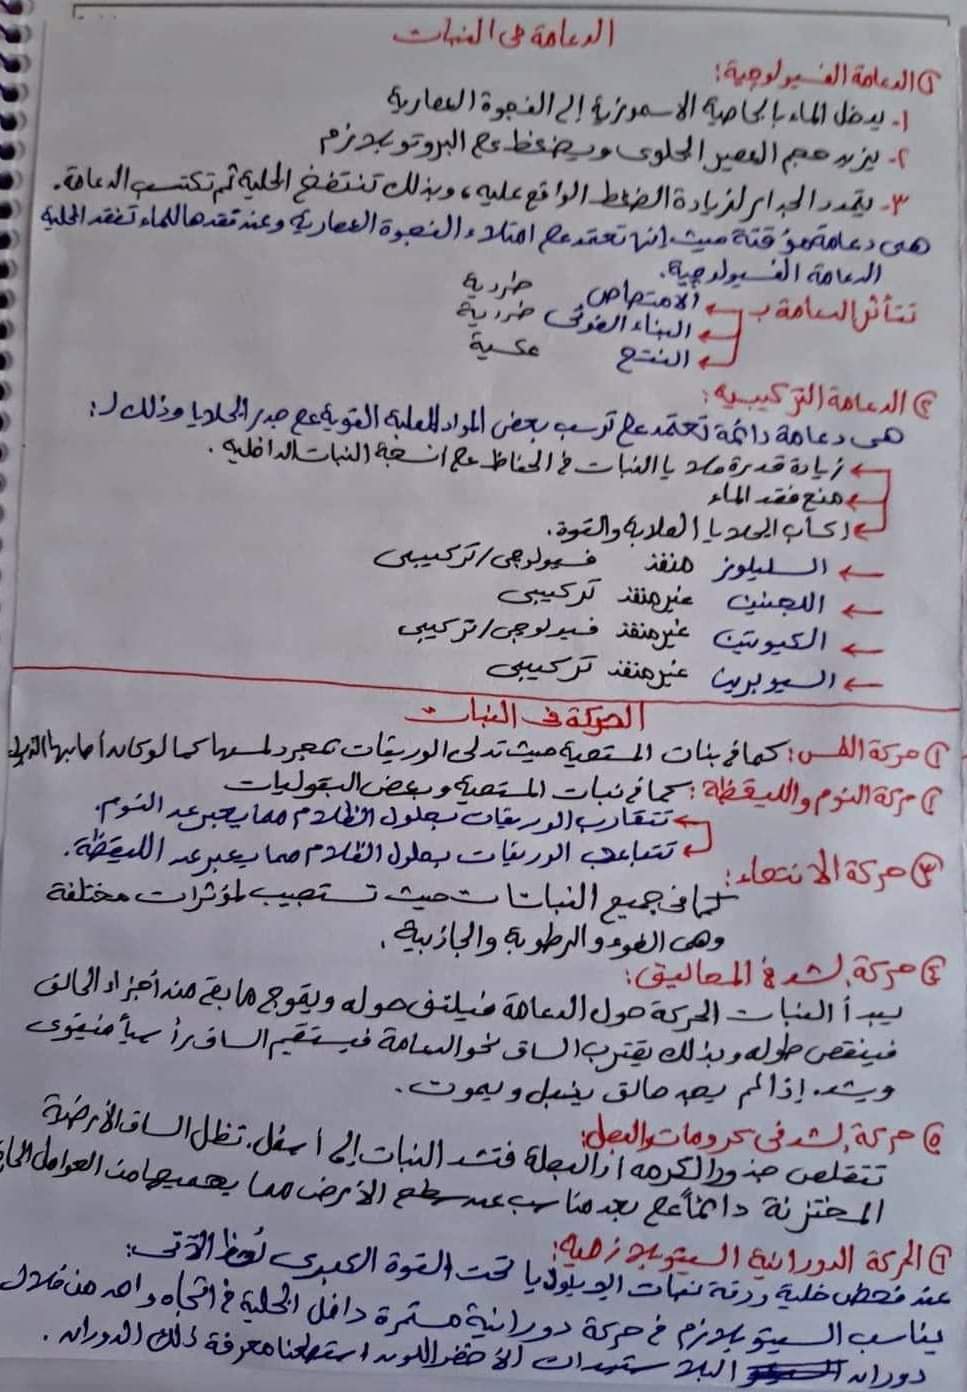 الدعامة في النبات
① الدعامة الفسيولوجية:
١- يدخل الماء بالخاصية الاسموزية إلى الفجوة العصارية
٢- يزيد حجم العصير الخلوى ويضغط على البروتوبلازم
٣- يتمدد الجدار لزيادة الضغط الواقع عليه، وبذلك تنتفخ الخلية ثم تكتسب الدعامة.
هى دعامة مؤقتة حيث إنها تعتمد على امتلاء الفجوة العصارية وعند فقدها للماء تفقد الخلية
الدعامة الفسيولوجية.
تتأثر الدعامة بـ ← الامتصاص طردية
← البناء الضوئى طردية
← النتح عكسية
② الدعامة التركيبية:
هى دعامة دائمة تعتمد على ترسب بعض المواد الصلبة القوية على جدر الخلايا وذلك لـ:
← زيادة قدرة خلايا النبات في الحفاظ على انسجة النبات الداخلية.
← منع فقد الماء
← اكساب الخلايا الصلابة والقوة.
← السليلوز منفذ فسيولوجى/تركيبى
← اللجنين غير منفذ تركيبى
← الكيوتين غير منفذ فسيولوجى/تركيبى
← السيوبرين غير منفذ تركيبى
الحركة فى النبات
① حركة اللمس: كما في نبات المستحية حيث تدلى الوريقات بمجرد لمسها كما لو كان أصابها الذبول
② حركة النوم واليقظة: كما في نبات المستحية وبعض البقوليات
← تتقارب الوريقات بحلول الظلام مما يعبر عن النوم.
← تتباعد الوريقات بحلول الظلام مما يعبر عن اليقظة.
③ حركة الانتحاء:
كما في جميع النباتات حيث تستجيب لمؤثرات مختلفة
وهى الضوء والرطوبة والجاذبية.
④ حركة الشد في المحاليق:
يبدأ النبات الحركة حول الدعامة فيلتف حوله ويتموج ما بقى من أجزاء الحالق
فينقص طوله وبذلك يقترب الساق نحو الدعامة فيستقيم الساق رأسياً فيقوى
ويشتد. إذا لم يجد حالق يذبل ويموت.
⑤ حركة الشد فى كورمات والبصل:
تتقلص جذور الكرمه أو البصلة فتشد النبات إلى أسفل. تظل الساق الأرضية
المختزنة دائماً على بعد مناسب عند سطح الأرض مما يحميها من العوامل
⑥ الحركة الدورانية السيتوبلازمية:
عند فحص خلية ورقة نبات الايلوديا تحت القوة الكبرى نُلاحظ الآتى:
ينساب السيتوبلازم في حركة دورانية مستمرة داخل الخلية في اتجاه واحد من خلال
دوران البلاستيدات الأخضر اللون استطعنا معرفة ذلك الدوران.